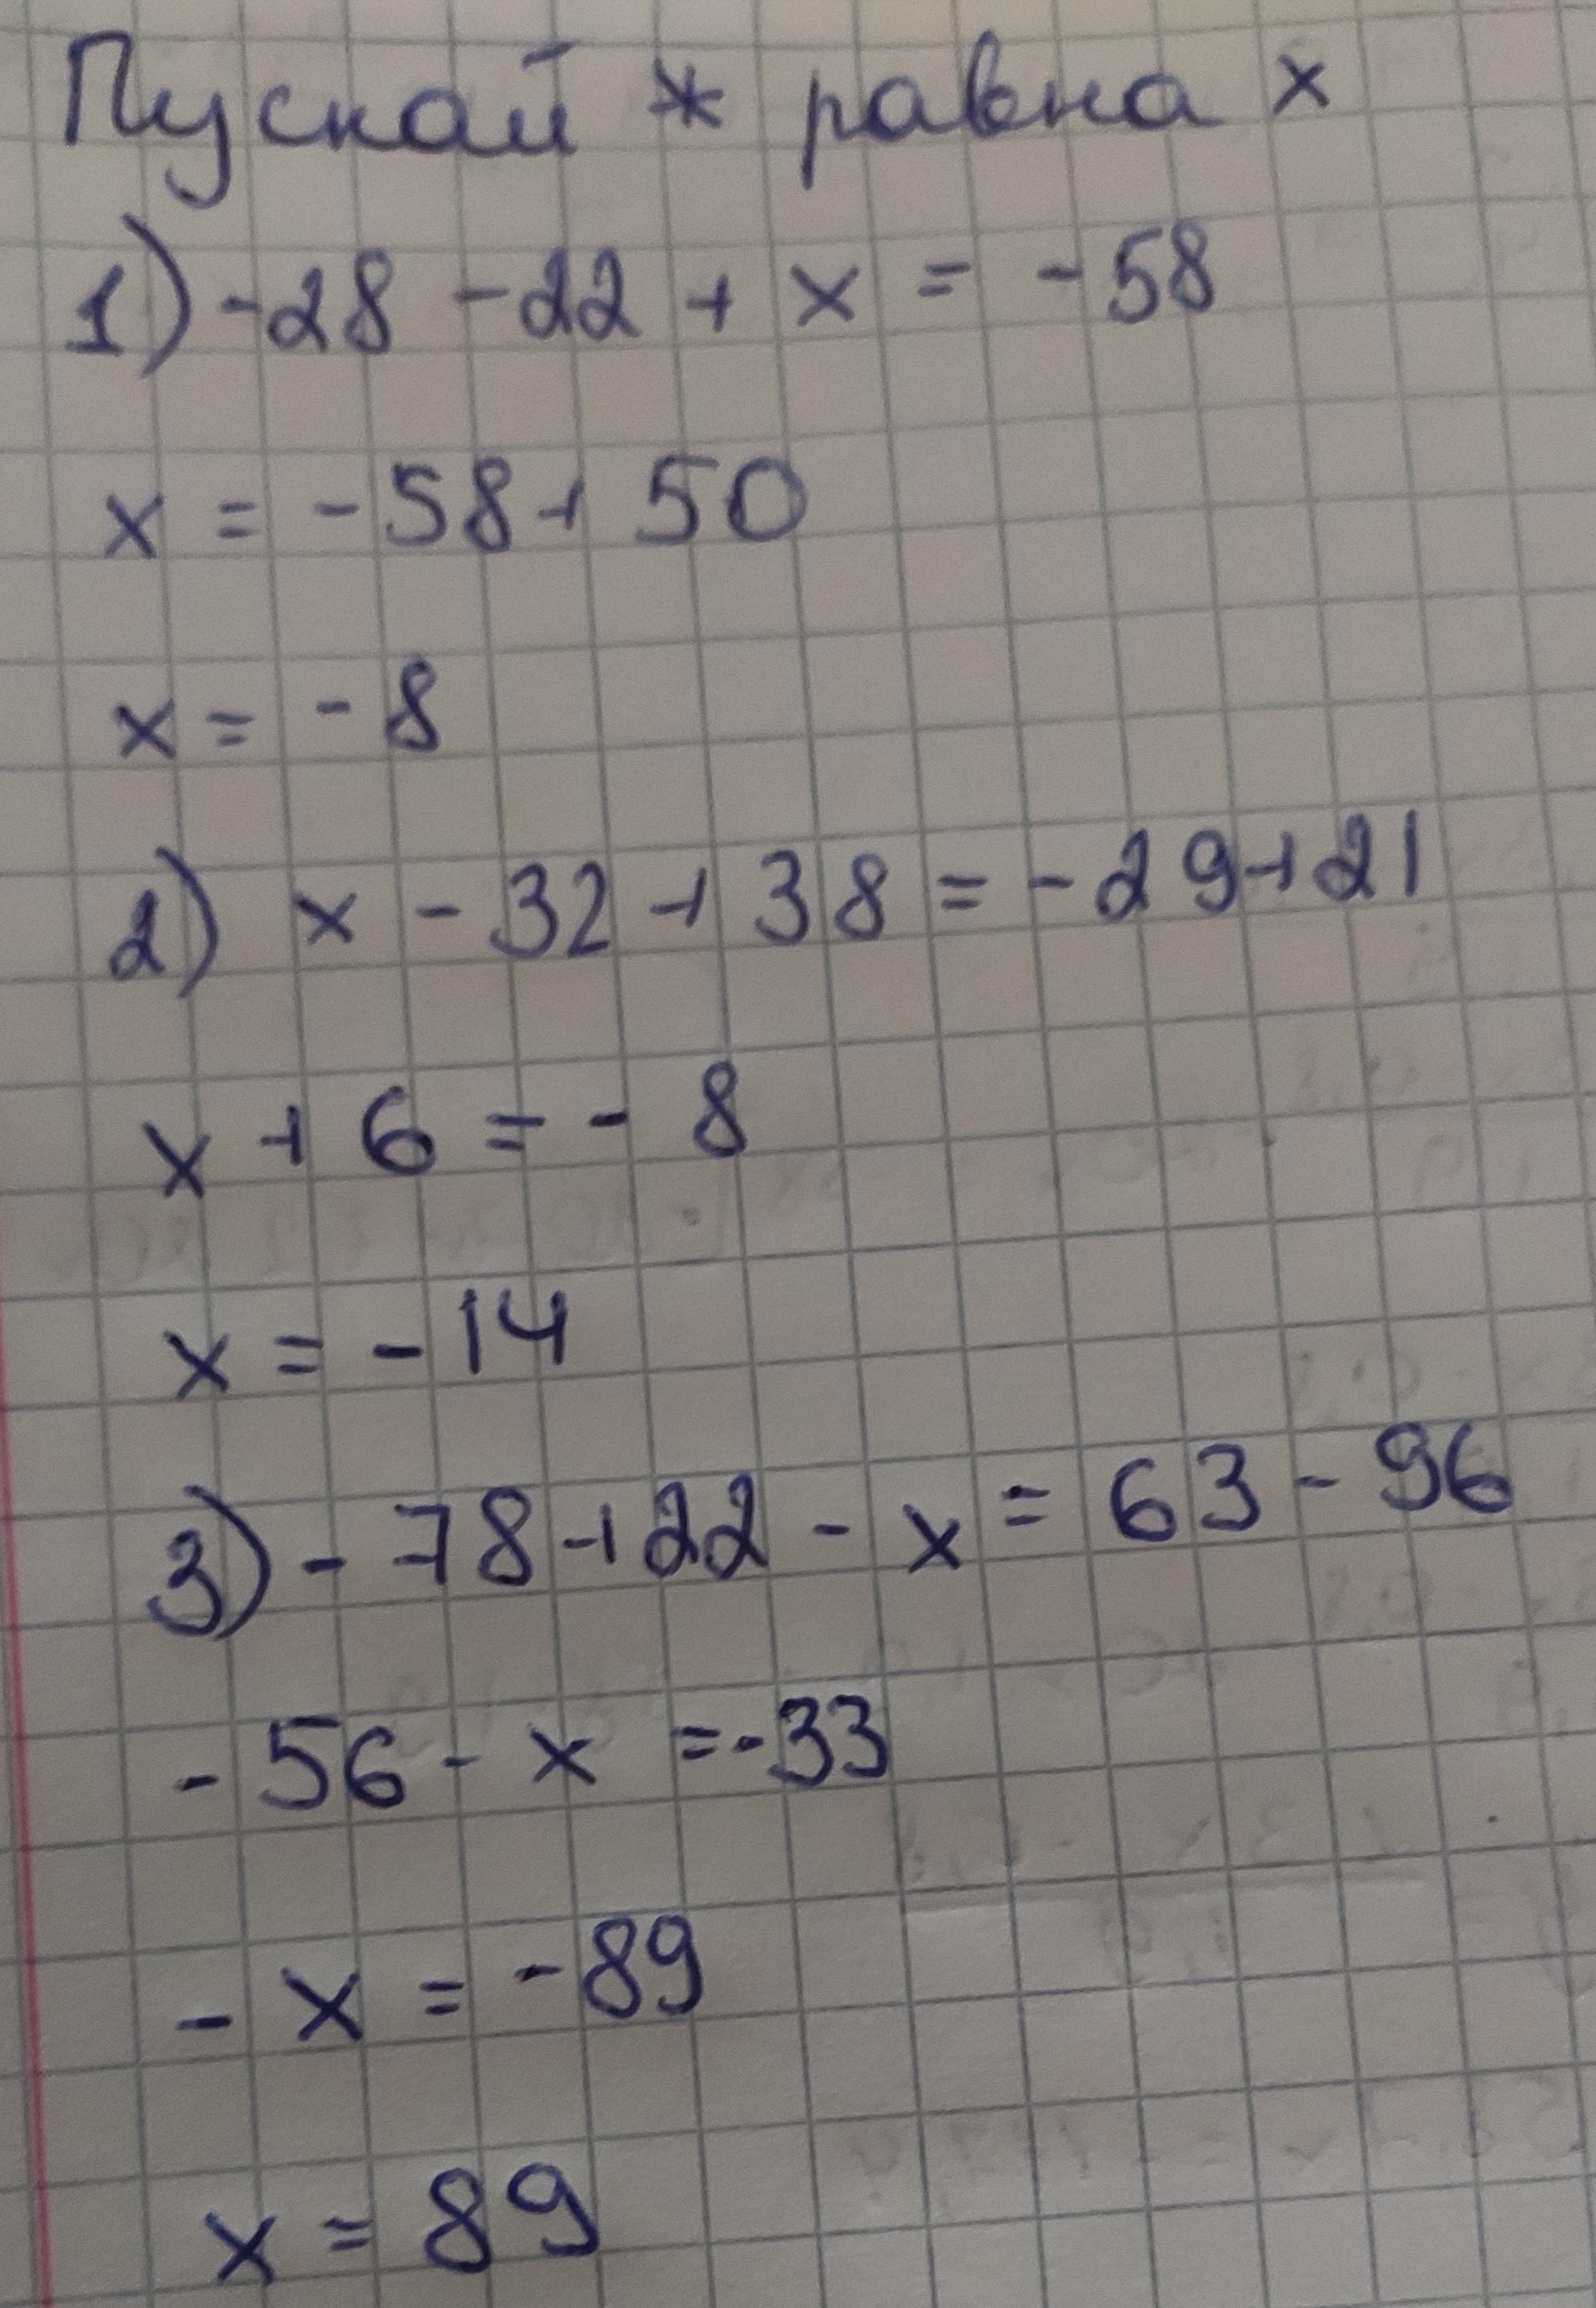 Пускай * равна x
1) -28 -22 + x = -58
x = -58 + 50
x = -8
2) x - 32 + 38 = -29 + 21
x + 6 = -8
x = -14
3) -78 + 22 - x = 63 - 96
-56 - x = -33
-x = -89
x = 89